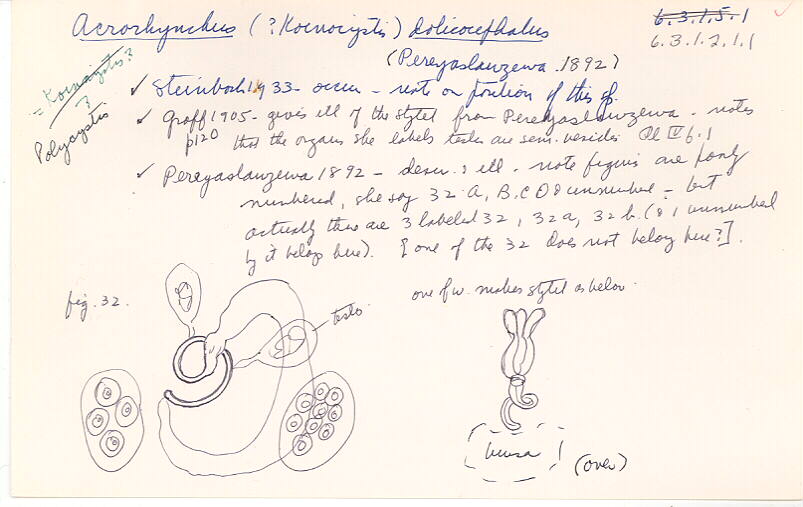 Acrorhynchus (?Koinocystis) dolicocephalus
6.3.1.5.1
6.3.1.2.1.1
(Pereyaslawzewa 1892)
= Koinocystis?
?
Polycystis
✓ Steinbock 1933 - occur - note on position of this sp.
✓ Graff 1905 - gives ill of the stylet from Pereyaslawzewa - notes
p120 that the organs she labels testes are sem. vesicles Pl IV 6.1
✓ Pereyaslawzewa 1892 - descr. & ill - note figures are poorly
numbered, she says 32 A, B, C D & unnumber - but
actually there are 3 labeled 32, 32a, 32b. (& 1 unnumbered
by it belongs here). [one of the 32 does not belong here?].
fig. 32.
testes
one f.w. makes stylet as below.
bursa !
(over)